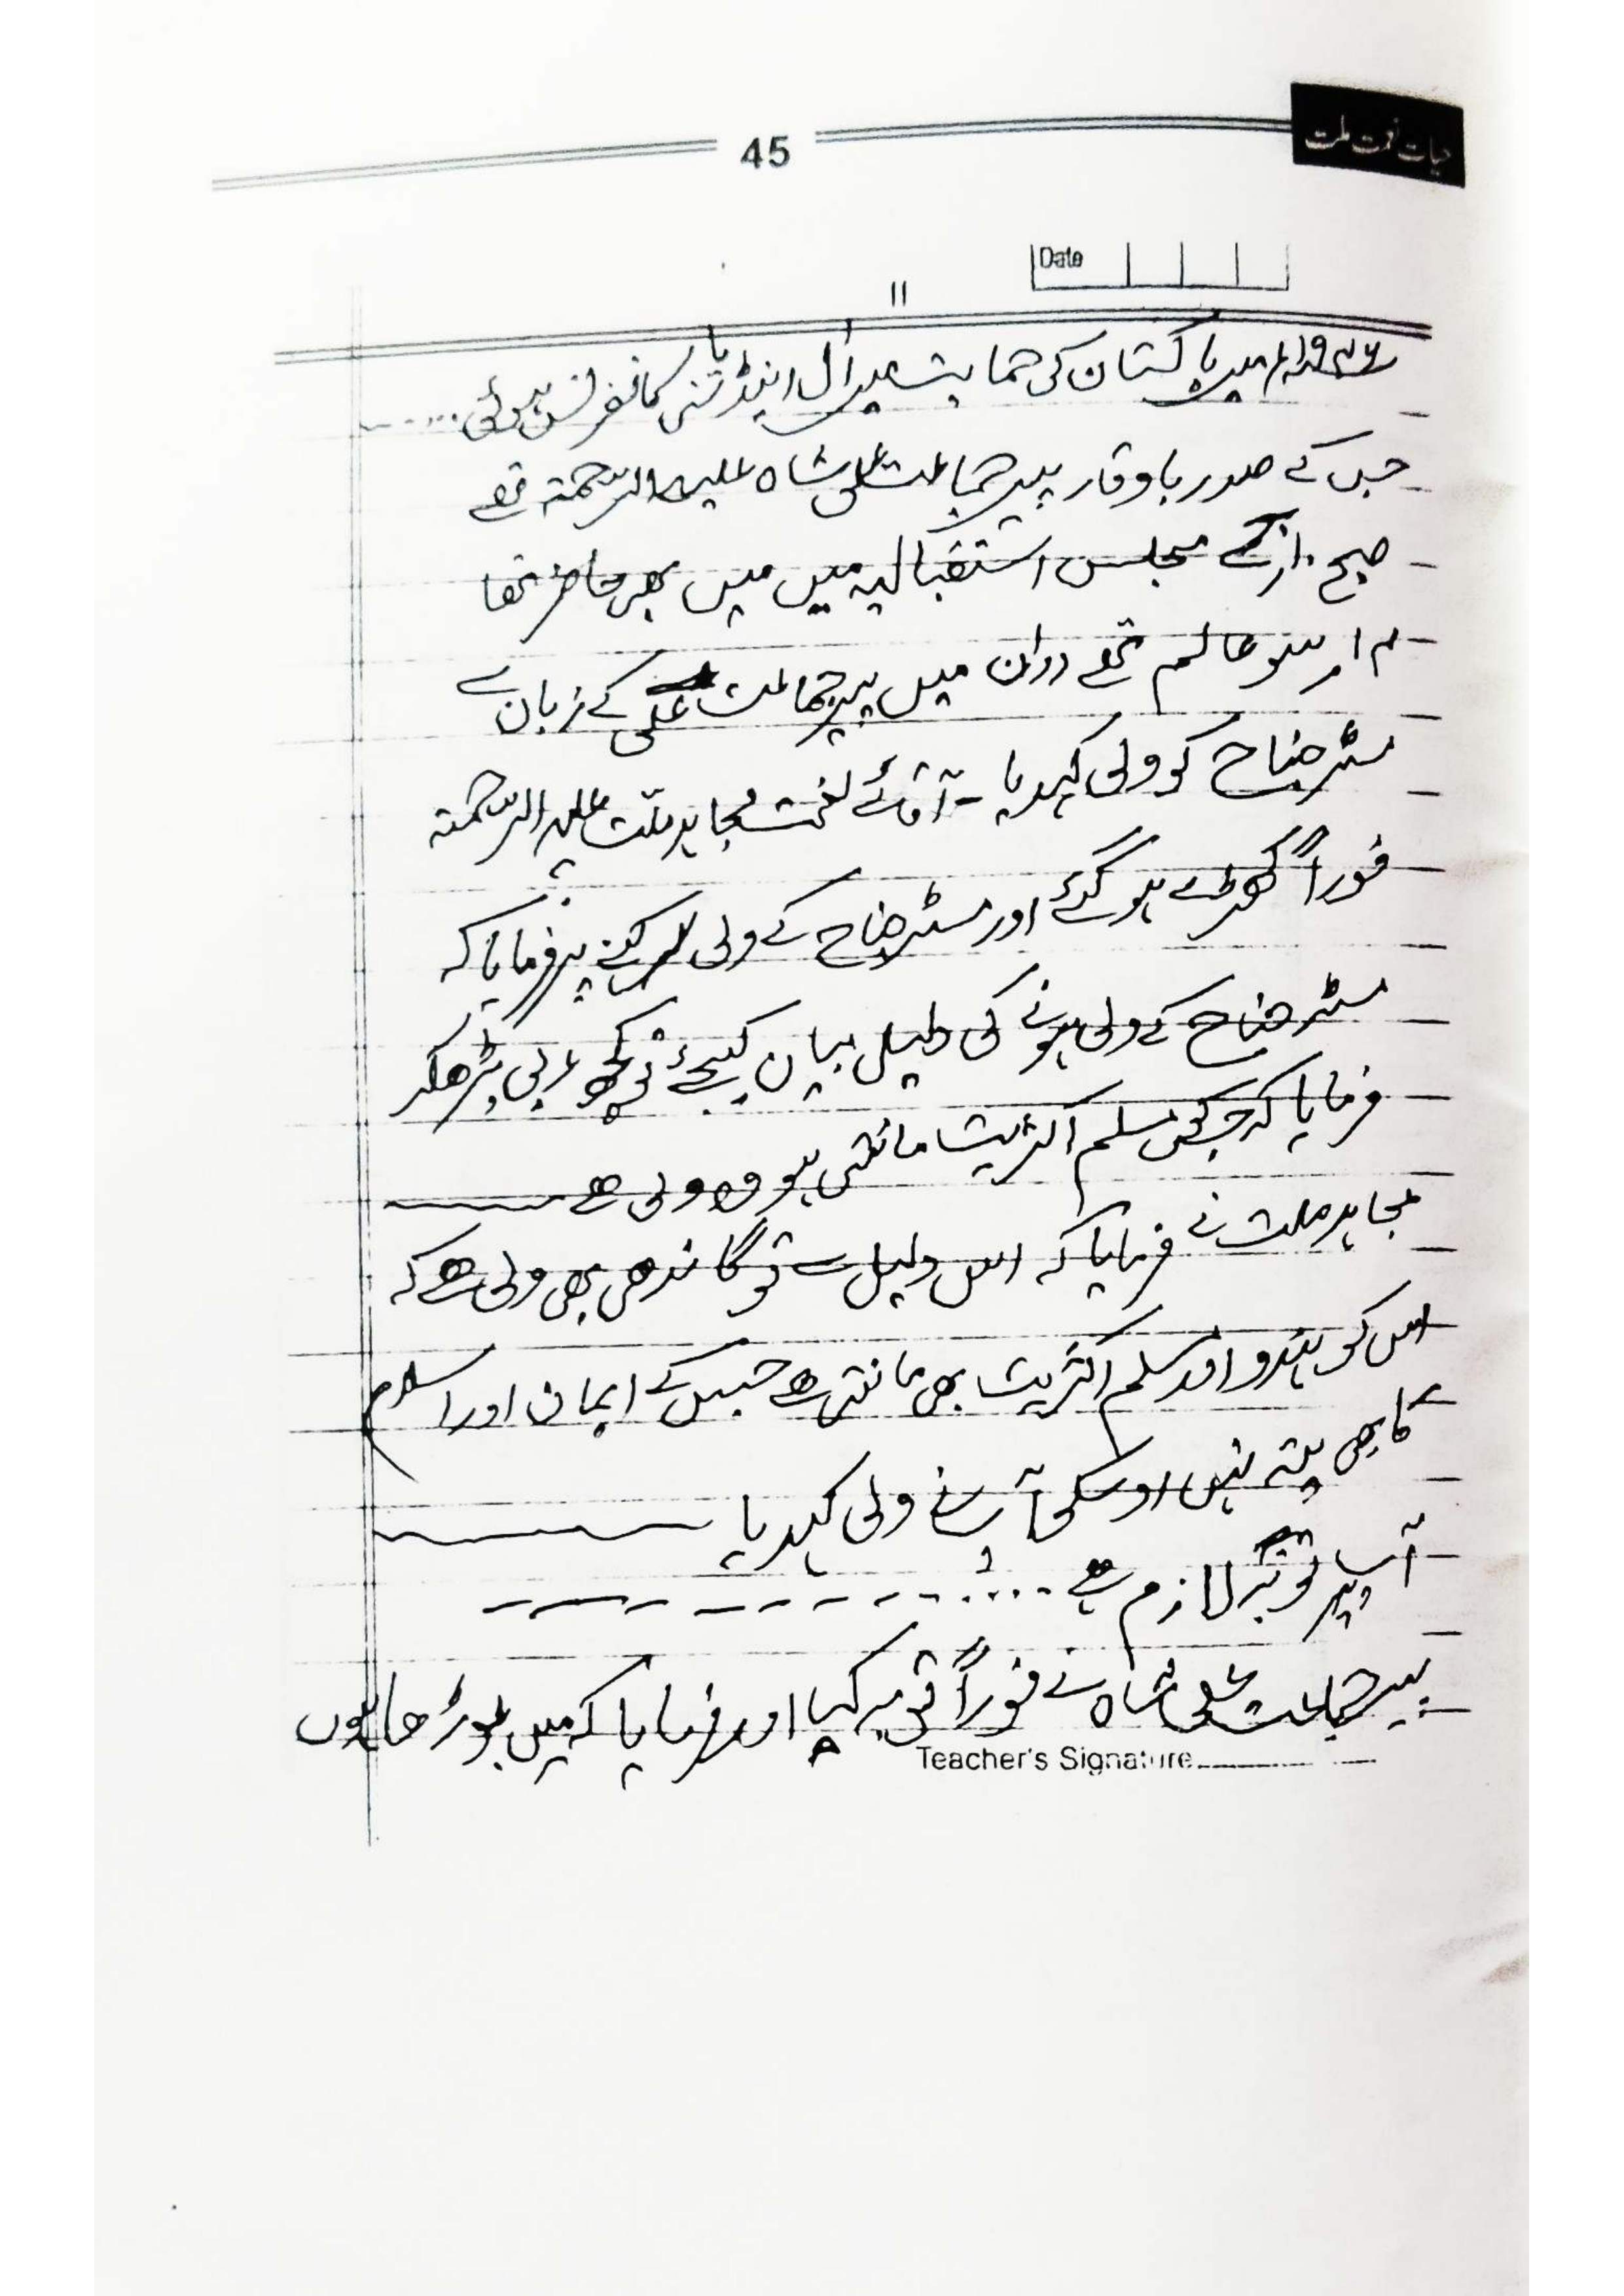 حیات نعمت ملت
45
Date
11
۱۹۴۶ء میں پاکستان کی حمایت میں آل انڈیا سنی کانفرنس ہوئی ....
جس کے صدر باوقار پیر جماعت علی شاہ علیہ الرحمتہ تھے
صبح ۱۰ بجے مجلس استقبالیہ میں میں بھی حاضر تھا
عالم تھے دوران میں پیر جماعت علی کے زبان سے
مسٹر جناح کو ولی کہدیا - آقائے نعمت مجاہد ملت علیہ الرحمتہ
فوراً کھڑے ہو گئے اور مسٹر جناح کے ولی کہنے پر فرمایا کہ
مسٹر جناح کے ولی ہونے کی دلیل بیان کیجئے تو کچھ عربی پڑھکر
فرمایا کہ جس کی مسلم اکثریت مانتی ہو وہ ولی ھے
مجاہد ملت نے فرمایا کہ اس دلیل سے تو گاندھی بھی ولی ھے کہ
اس کو ہندو اور مسلم اکثریت بھی مانتی ھے جس کے ایمان اور اسلام
کا بھی پتہ نہیں اوسکی آپ نے ولی کہدیا
آپ پر توبہ لازم ہے ....
پیر جماعت علی شاہ نے فوراً توبہ کیا اور فرمایا کہ میں بوڑھا ہوں
Teacher's Signature